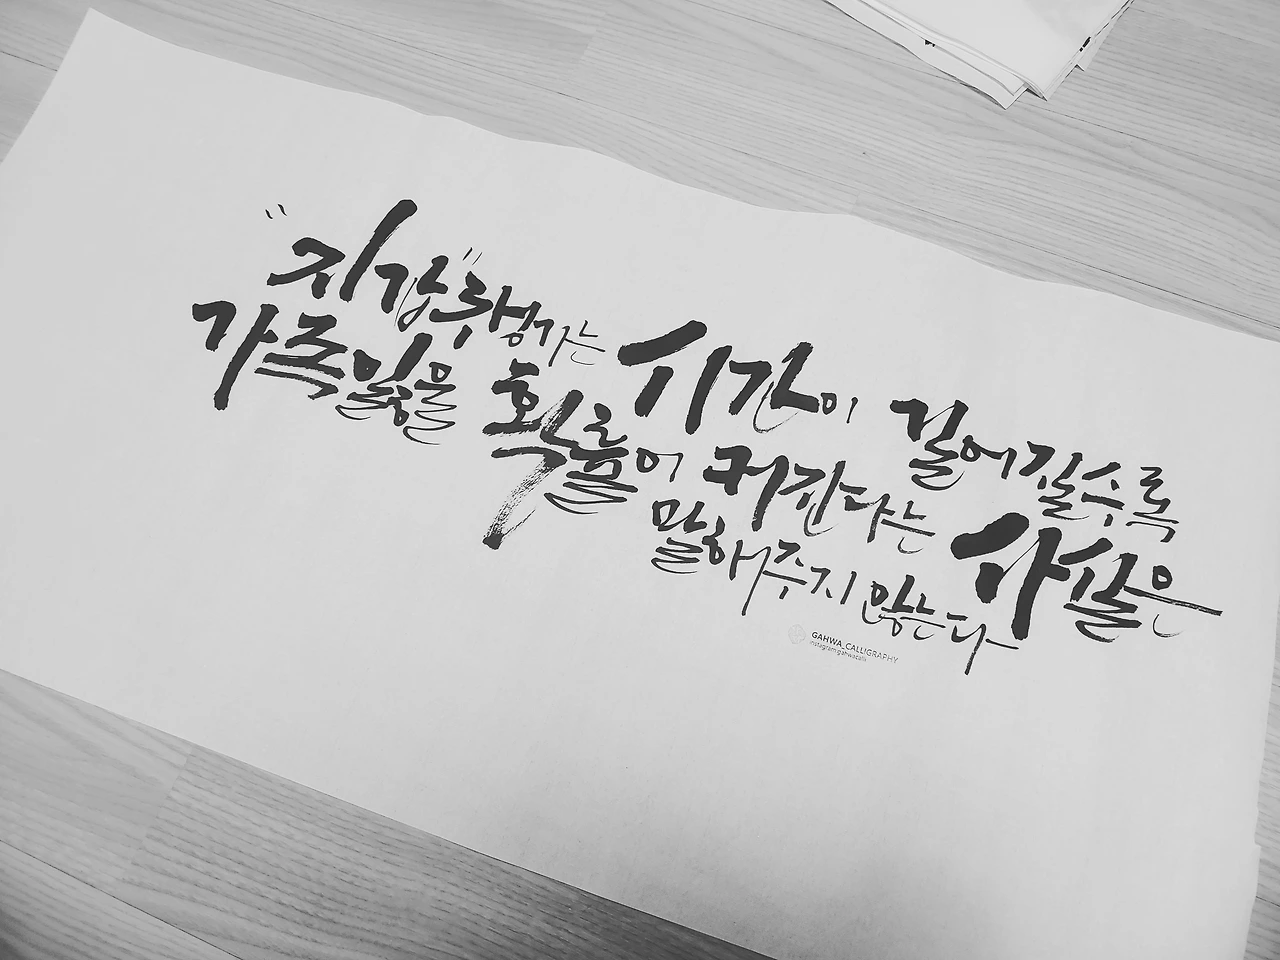 "지갑" 챙기는 시간이 길어질수록
가족 잃을 확률이 커진다는 사실은
말해주지 않는다
GAHWA_CALLIGRAPHY
instagram:gahwacalli